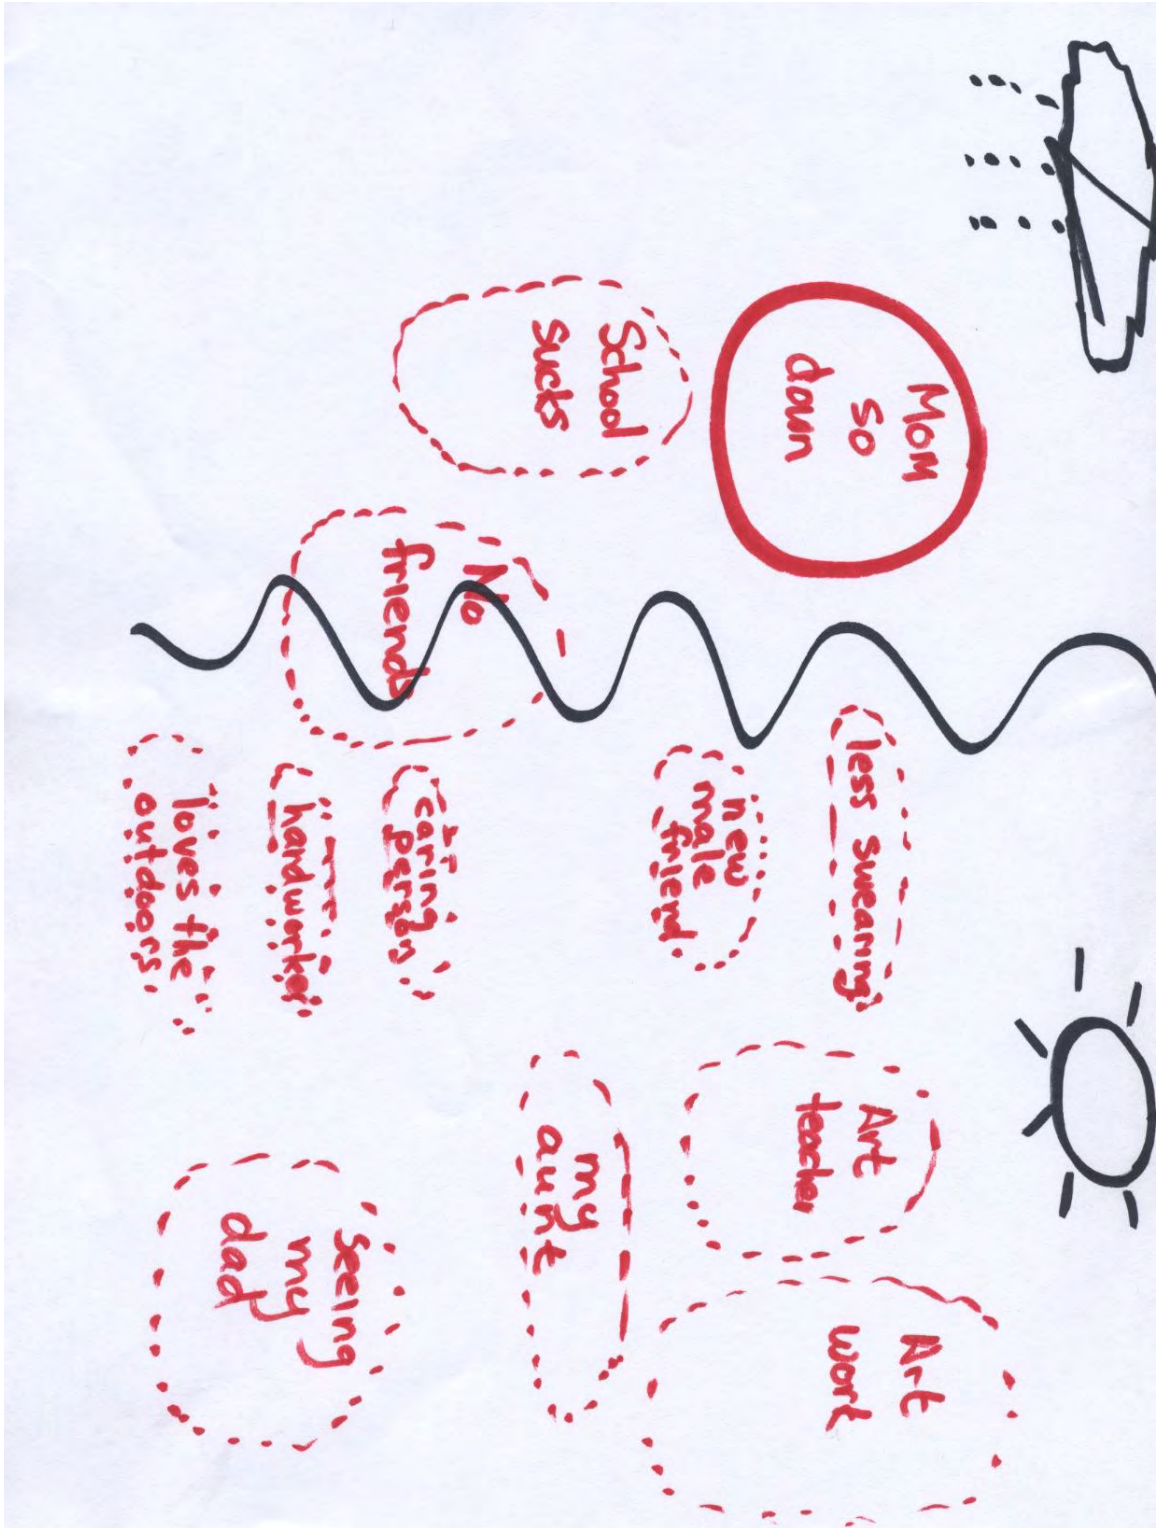 Mom
so
down
School
sucks
No
friends
less swearing
new
male
friend
caring
person
hardworker
loves the
outdoors
Art
teacher
my
aunt
Art
work
seeing
my
dad